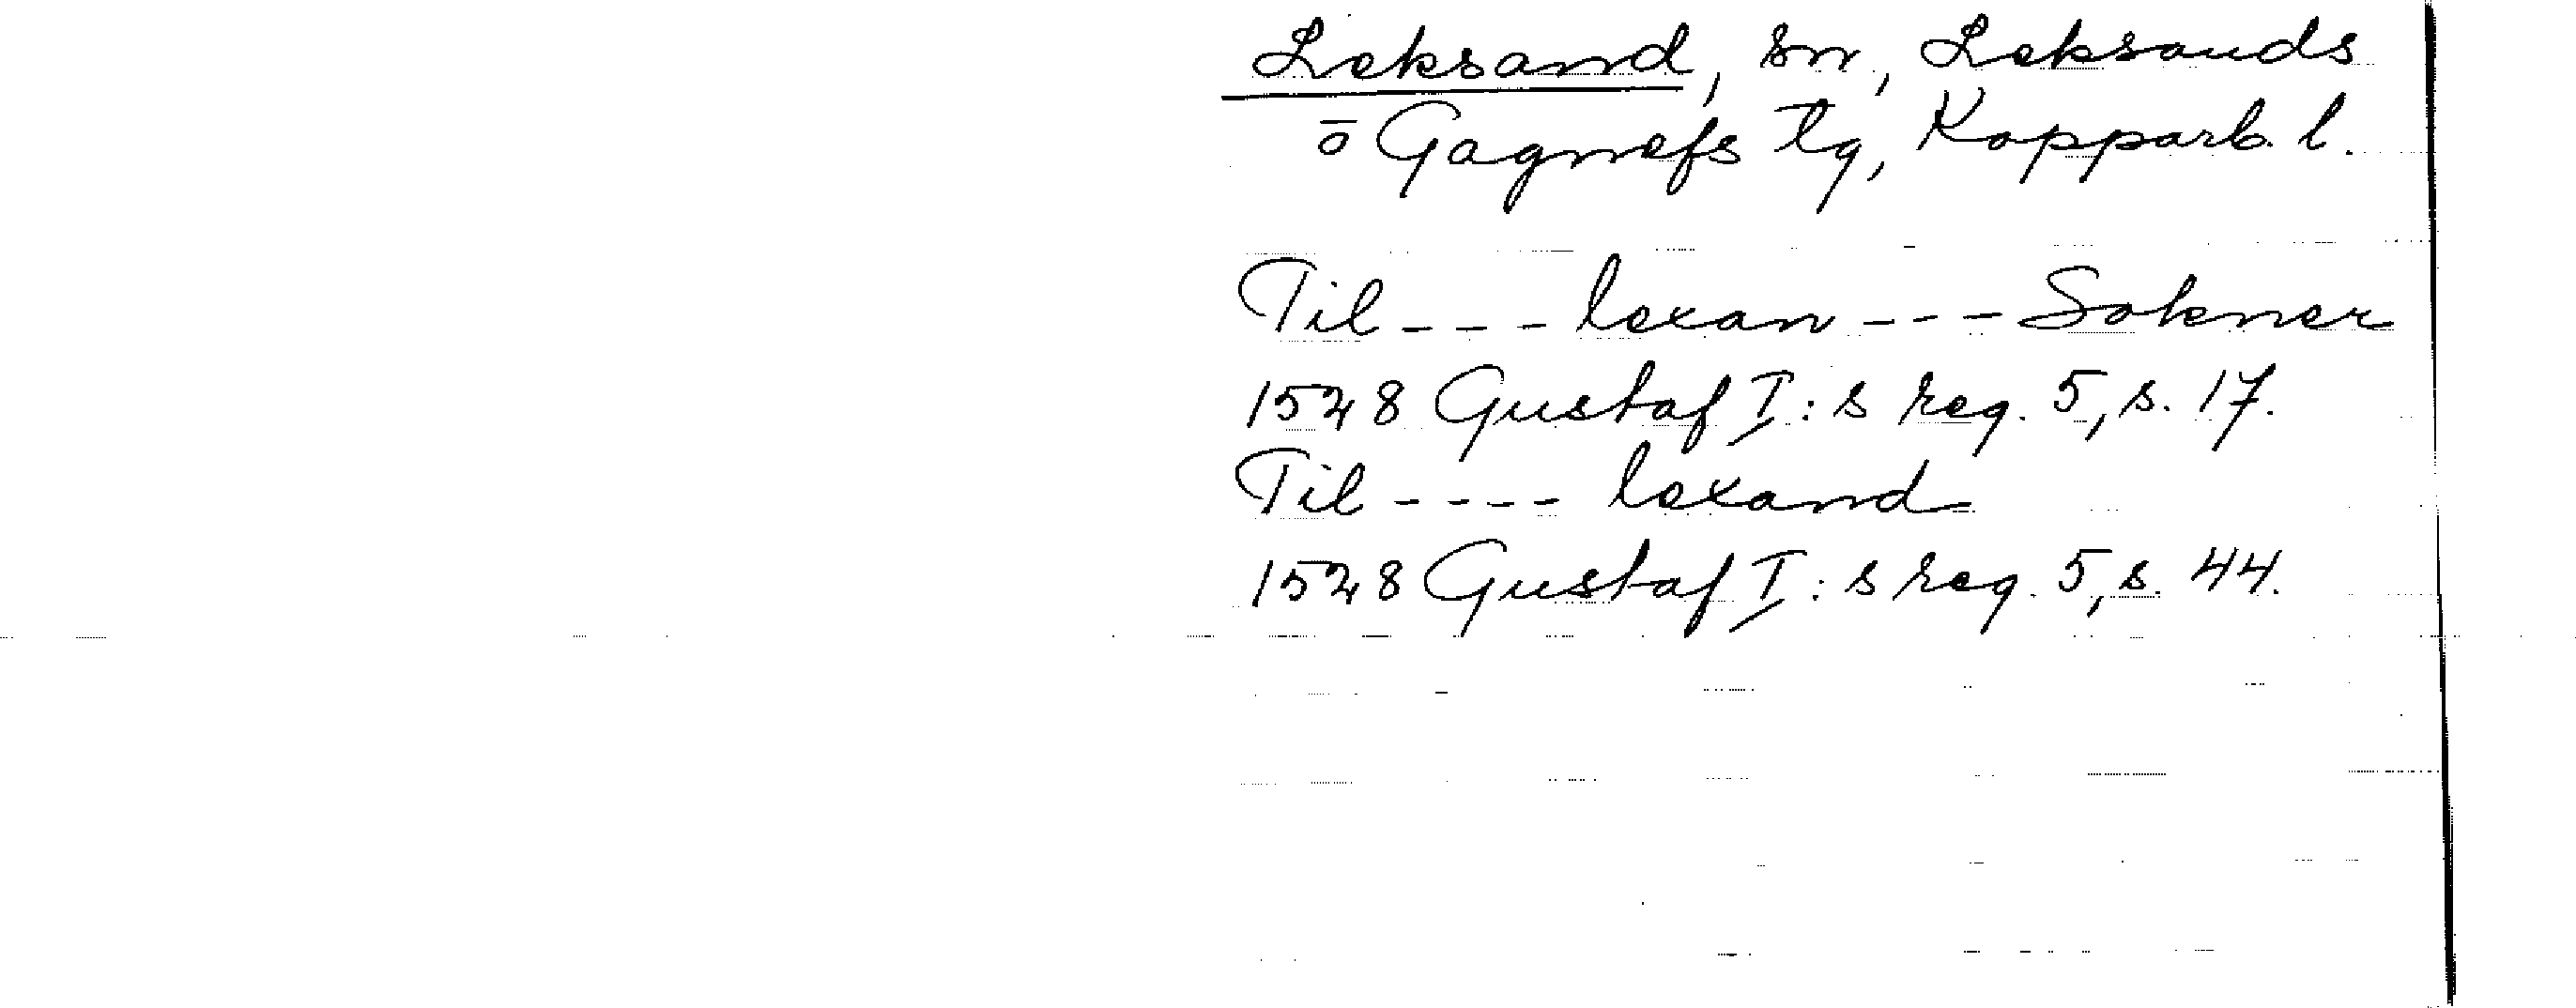 Leksand, sn, Leksands
o̅ Gagnefs tg, Kopparb. l.
Til - - - lexan - - - Sokner
1528 Gustaf I:s reg. 5, s. 17.
Til - - - - lexand
1528 Gustaf I:s reg. 5, s. 44.